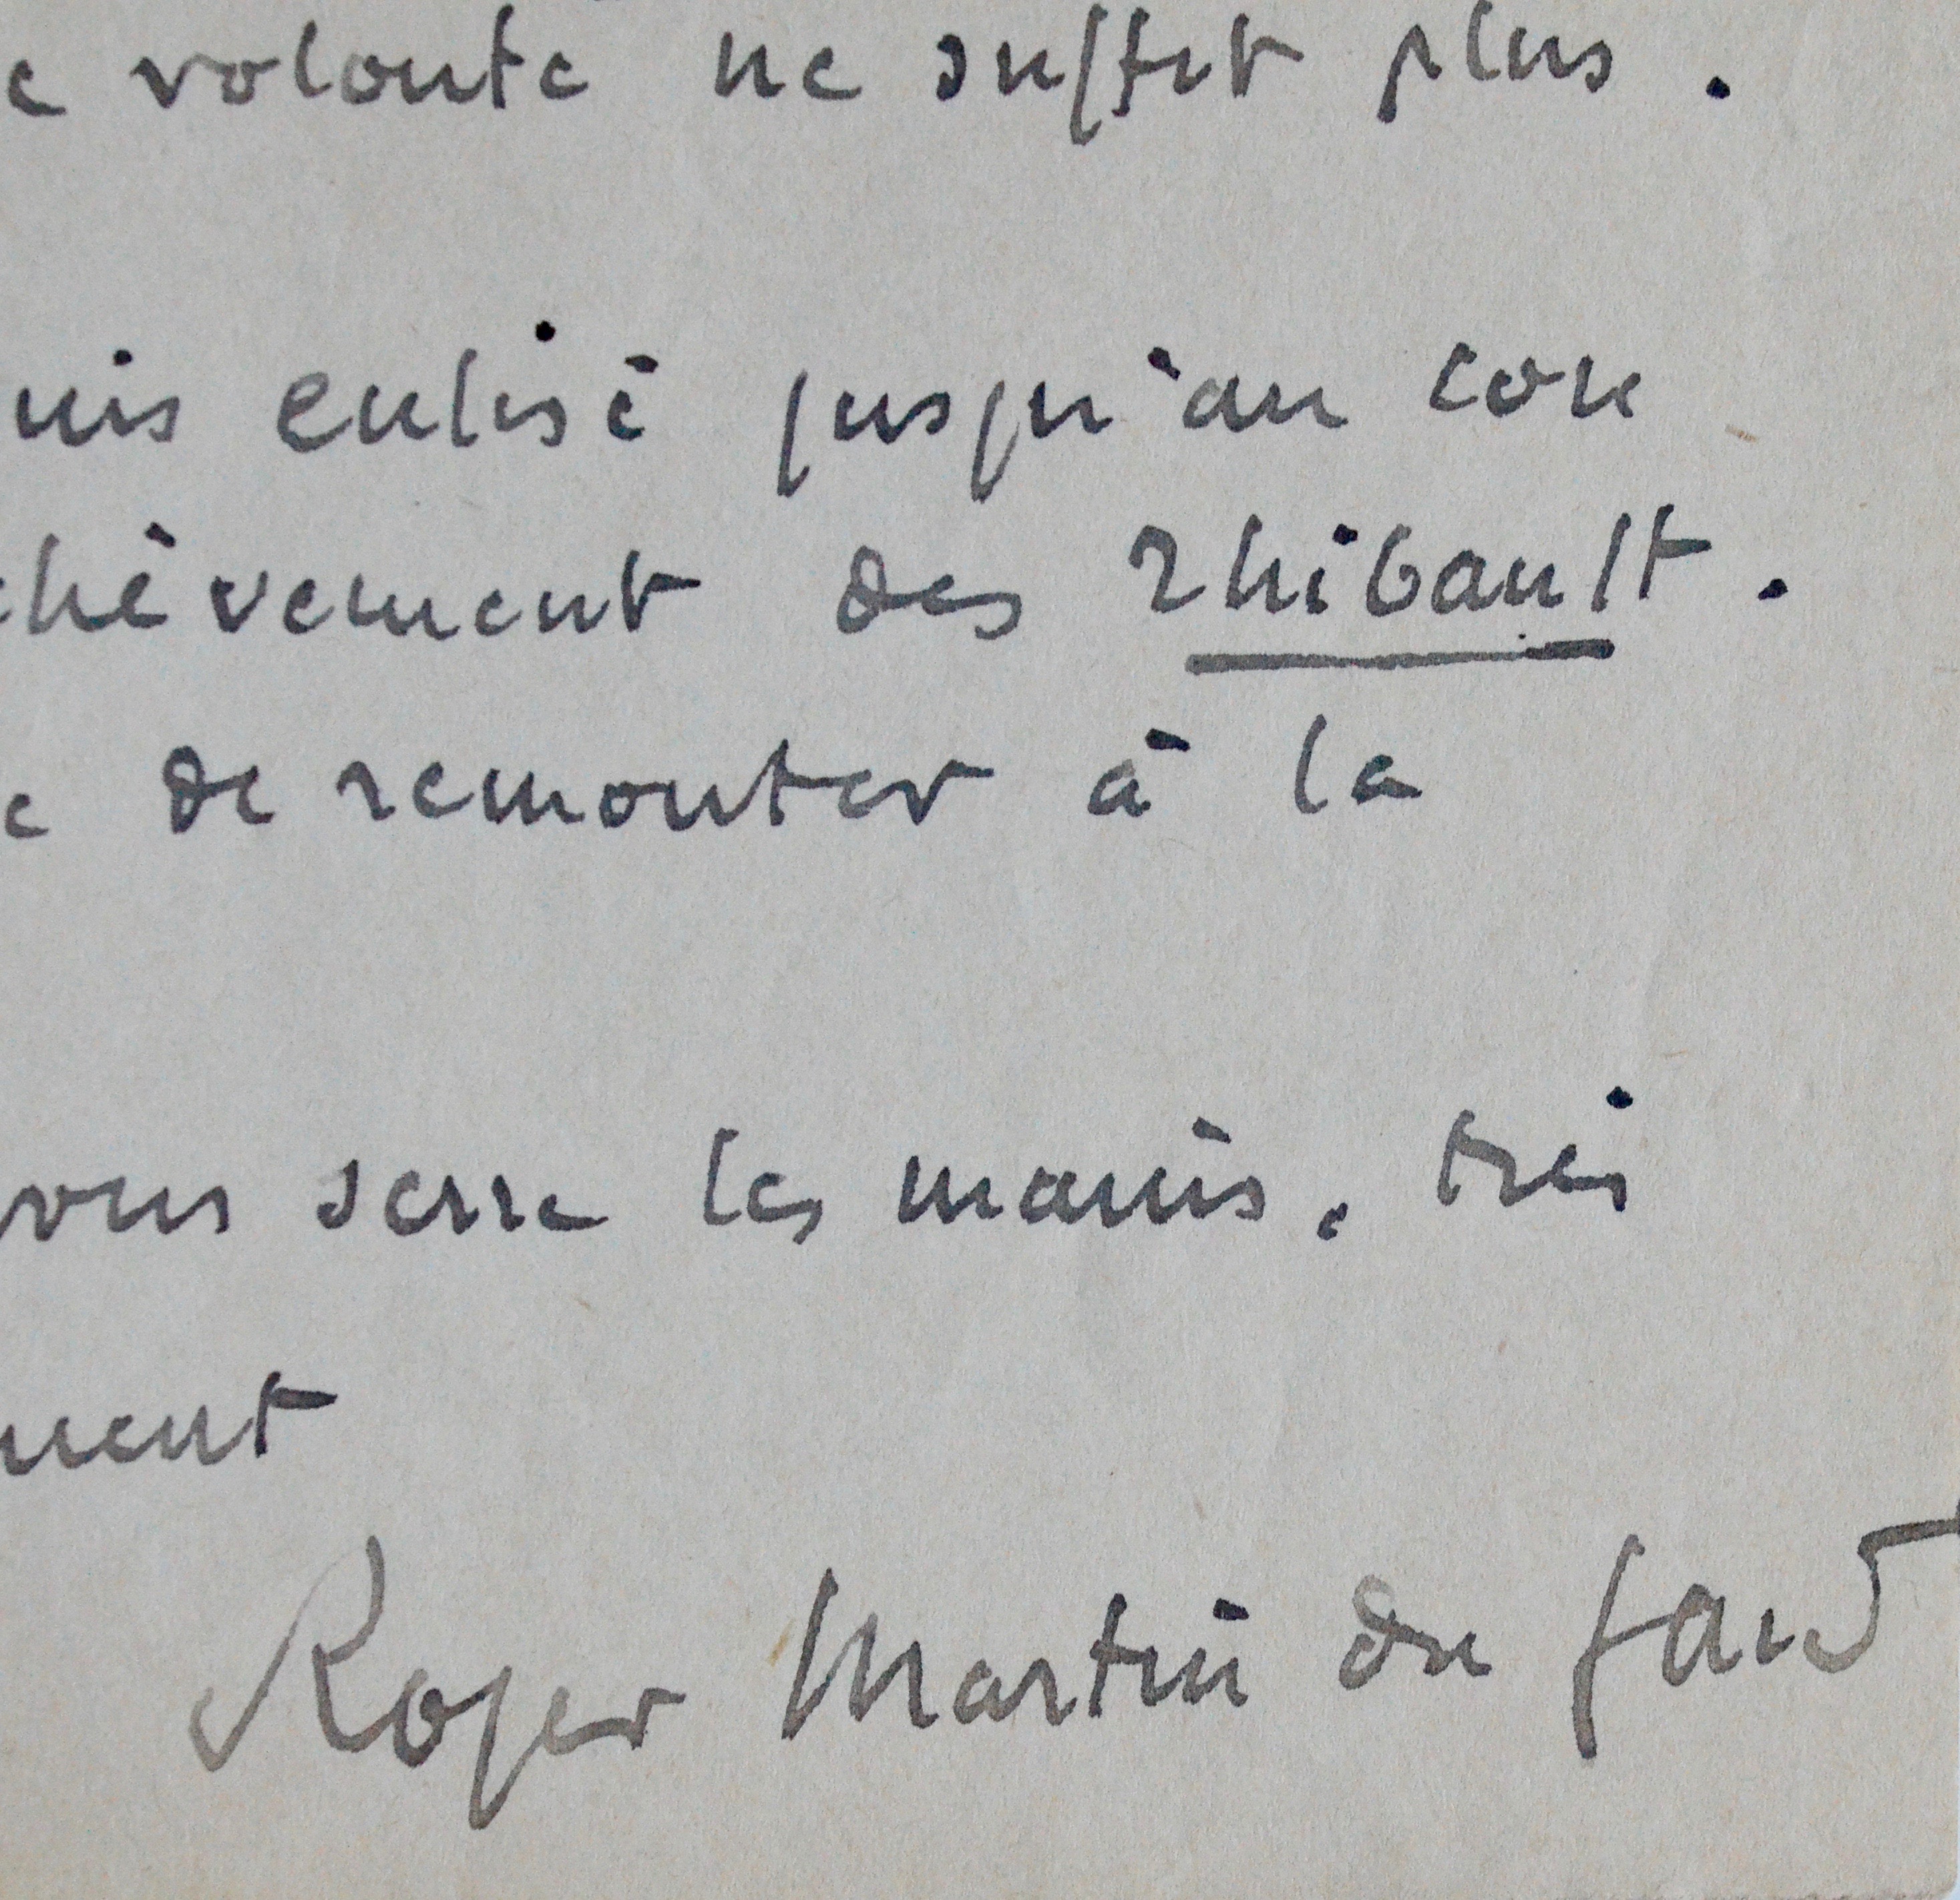 e volonté ne suffit plus.
uis enlisé jusqu'au cou
chèvement des Thibault.
e de remonter à la
vous serre les mains, très
ment
Roger Martin du Gard